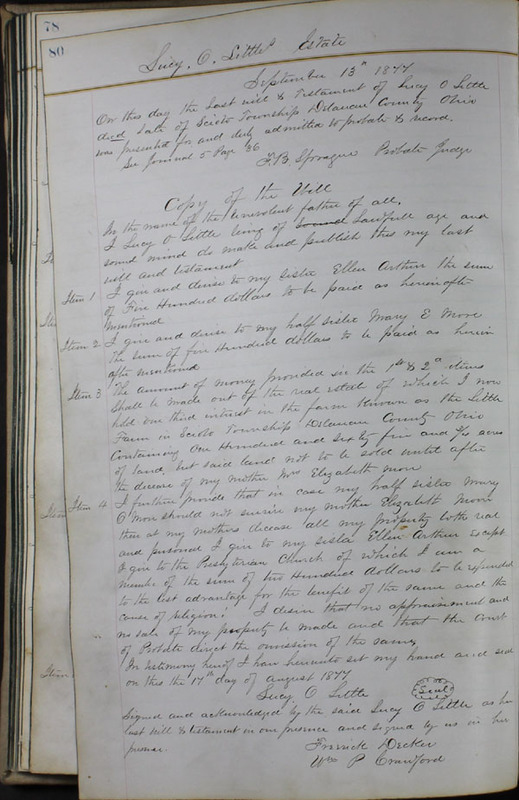 78
80
Lucy. O. Little's Estate
September 13th 1877
On this day the Last will & Testament of Lucy O Little
died Late of Scioto Township Delaware County Ohio
was presented for and duly admitted to probate & record.
See Journal 5 Page 36
F. B. Sprague Probate Judge
Copy of the Will
In the name of the benevolent father of all.
I Lucy O Little being of sound Lawfull age and
sound mind do make and publish this my last
will and testament
Item 1 I give and devise to my sister Ellen Arthur the sum
of Five Hundred dollars to be paid as hereinafter
mentioned
Item 2 I give and devise to my half sister Mary E More
the sum of five Hundred dollars to be paid as herein
after mentioned
Item 3 The amount of money provided in the 1st & 2d items
shall be made out of the real estate of which I now
hold one third interest in the farm known as the Little
Farm in Scioto Township Delaware County Ohio
Containing One Hundred and sixty five and acres
of land, but said land not to be sold until after
the decease of my mother Mrs Elizabeth More
Item 4 I further provide that in case my half sister Mary
O More should not survive my mother Elizabeth More
then at my mothers decease all my property both real
and personal I give to my sister Ellen Arthur Except
I give to the Presbyterian Church of which I am a
member of the sum of two Hundred dollars to be
to the best advantage for the benefit of the same and the
cause of religion. I desire that no appraisement and
no sale of my property be made and that the Court
of Probate direct the omission of the same,
In testimony hereof I have hereunto set my hand and seal
on this the 17th day of August 1877
Lucy O Little Seal
Signed and acknowledged by the said Lucy O Little as her
last will & testament in our presence and signed by us in her
presence.
Fredrick Decker
Wm P Crawford